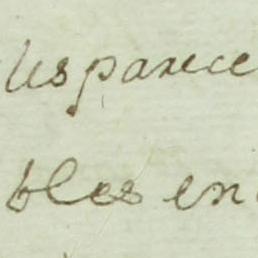 les parece
bles en